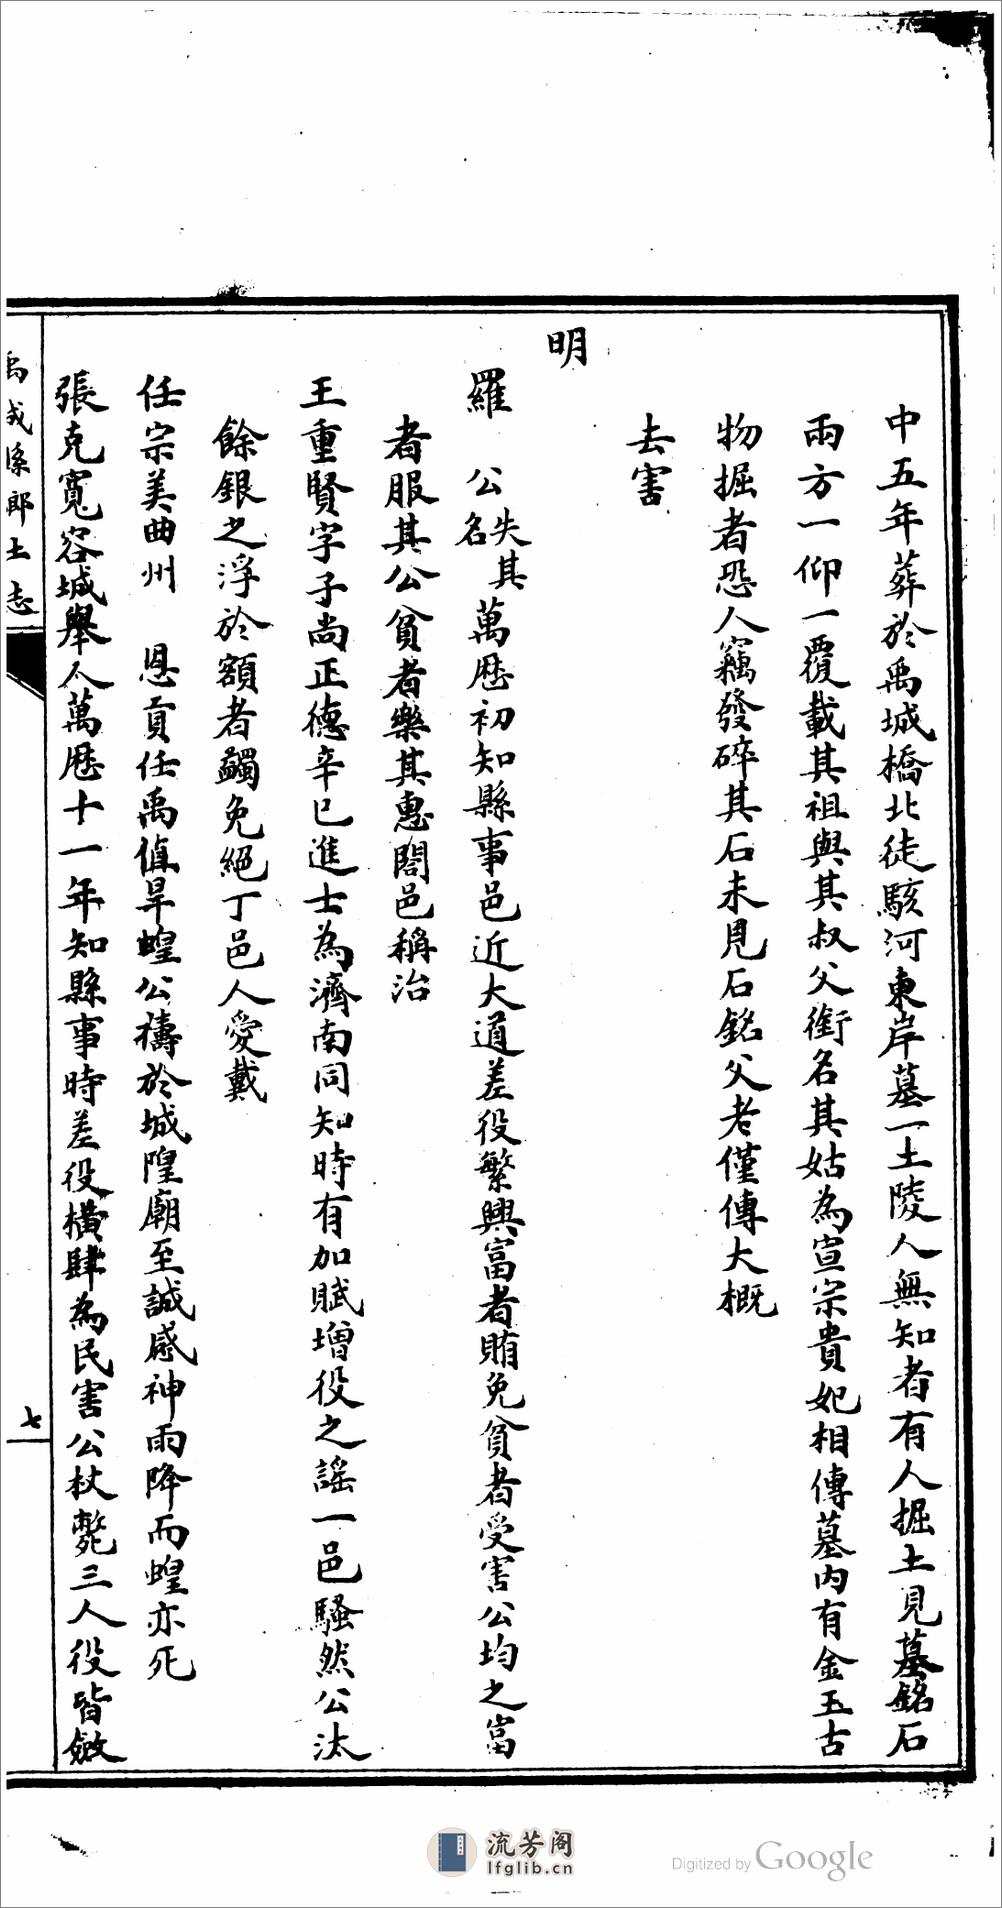 中五年葬於禹城橋北徒駭河東岸墓一土陵人無知者有人掘土見墓銘石
兩方一仰一覆載其祖與其叔父銜名其姑為宣宗貴妃相傳墓內有金玉古
物掘者恐人竊發碎其石未見石銘父老僅傳大概
去害
明
羅　公失其名萬歷初知縣事邑近大道差役繁興富者賄免貧者受害公均之富
者服其公貧者樂其惠闔邑稱治
王重賢字子尚正德辛巳進士為濟南同知時有加賦增役之謠一邑騷然公汰
餘銀之浮於額者蠲免絕丁邑人愛戴
任宗美曲州　恩貢任禹值旱蝗公禱於城隍廟至誠感神雨降而蝗亦死
張克寬容城舉人萬歷十一年知縣事時差役橫肆為民害公杖斃三人役皆斂
禹城縣鄉土志
七
流芳阁
lfglib.cn
Digitized by Google